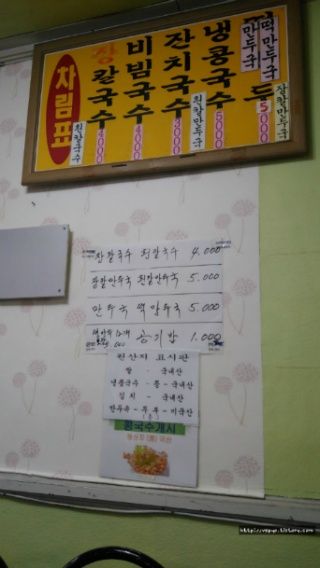 차림표
장칼국수 4000
흰칼국수
비빔국수 4000
잔치국수 3000
흰칼만두국
냉콩국수 5000
만두국
떡만두국
두 5000
장칼만두국
장칼국수 흰칼국수 4,000
장칼만두국 흰칼만두국 5,000
만두국 떡만두국 5,000
공기밥 1,000
원산지 표시판
쌀 - 국내산
냉콩국수 - 콩 - 국내산
김치 - 국내산
만두속 - 두부 - 미국산
콩국수개시